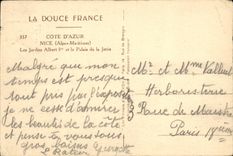 LA DOUCE FRANCE
357 CÔTE D'AZUR
NICE (Alpes-Maritimes)
Les Jardins Albert 1er et le Palais de la Jetée
Malgré que mon
temps est presque
tout pris par l'expo
je ne cesse d'admirer
les beautés de la côte
et pense à vous tous,
gros baisers
Mr. et Mme
Herboristerie
Rue de Maistre
Paris